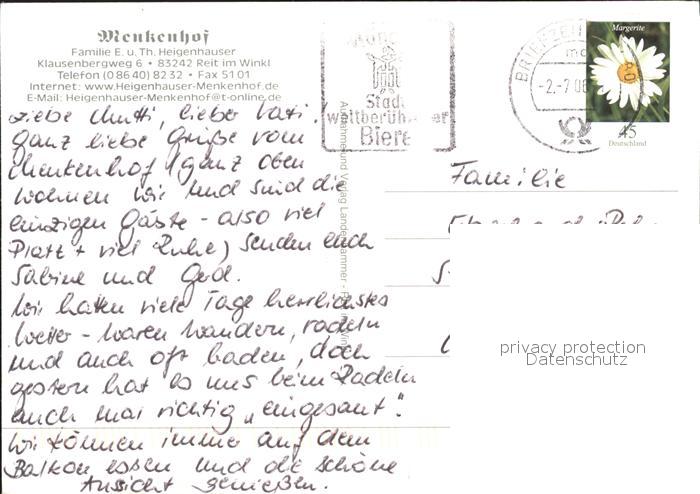 Menkenhof
Familie E. u. Th. Heigenhauser
Klausenbergweg 6 • 83242 Reit im Winkl
Telefon (0 86 40) 82 32 • Fax 51 01
Internet: www.Heigenhauser-Menkenhof.de
E-Mail: Heigenhauser-Menkenhof@t-online.de
Liebe Mutti, lieber Vati!
ganz liebe Grüße vom
Menkenhof (ganz oben
wohnen wir und sind die
einzigen Gäste - also viel
Platz + viel Ruhe) senden euch
Sabine und Gerd.
Wir hatten viele Tage herrlichstes
Wetter - waren wandern, radeln
und auch oft baden, doch
gestern hat es uns beim Radeln
auch mal richtig „eingesaut".
Wir können immer auf dem
Balkon essen und die schöne
Aussicht genießen.
Aufnahme und Verlag Landeshammer
Stadt
weltberühmter
Biere
BRIEFZEN
-2.-7.08
Margerite
45
Deutschland
Familie
privacy protection
Datenschutz